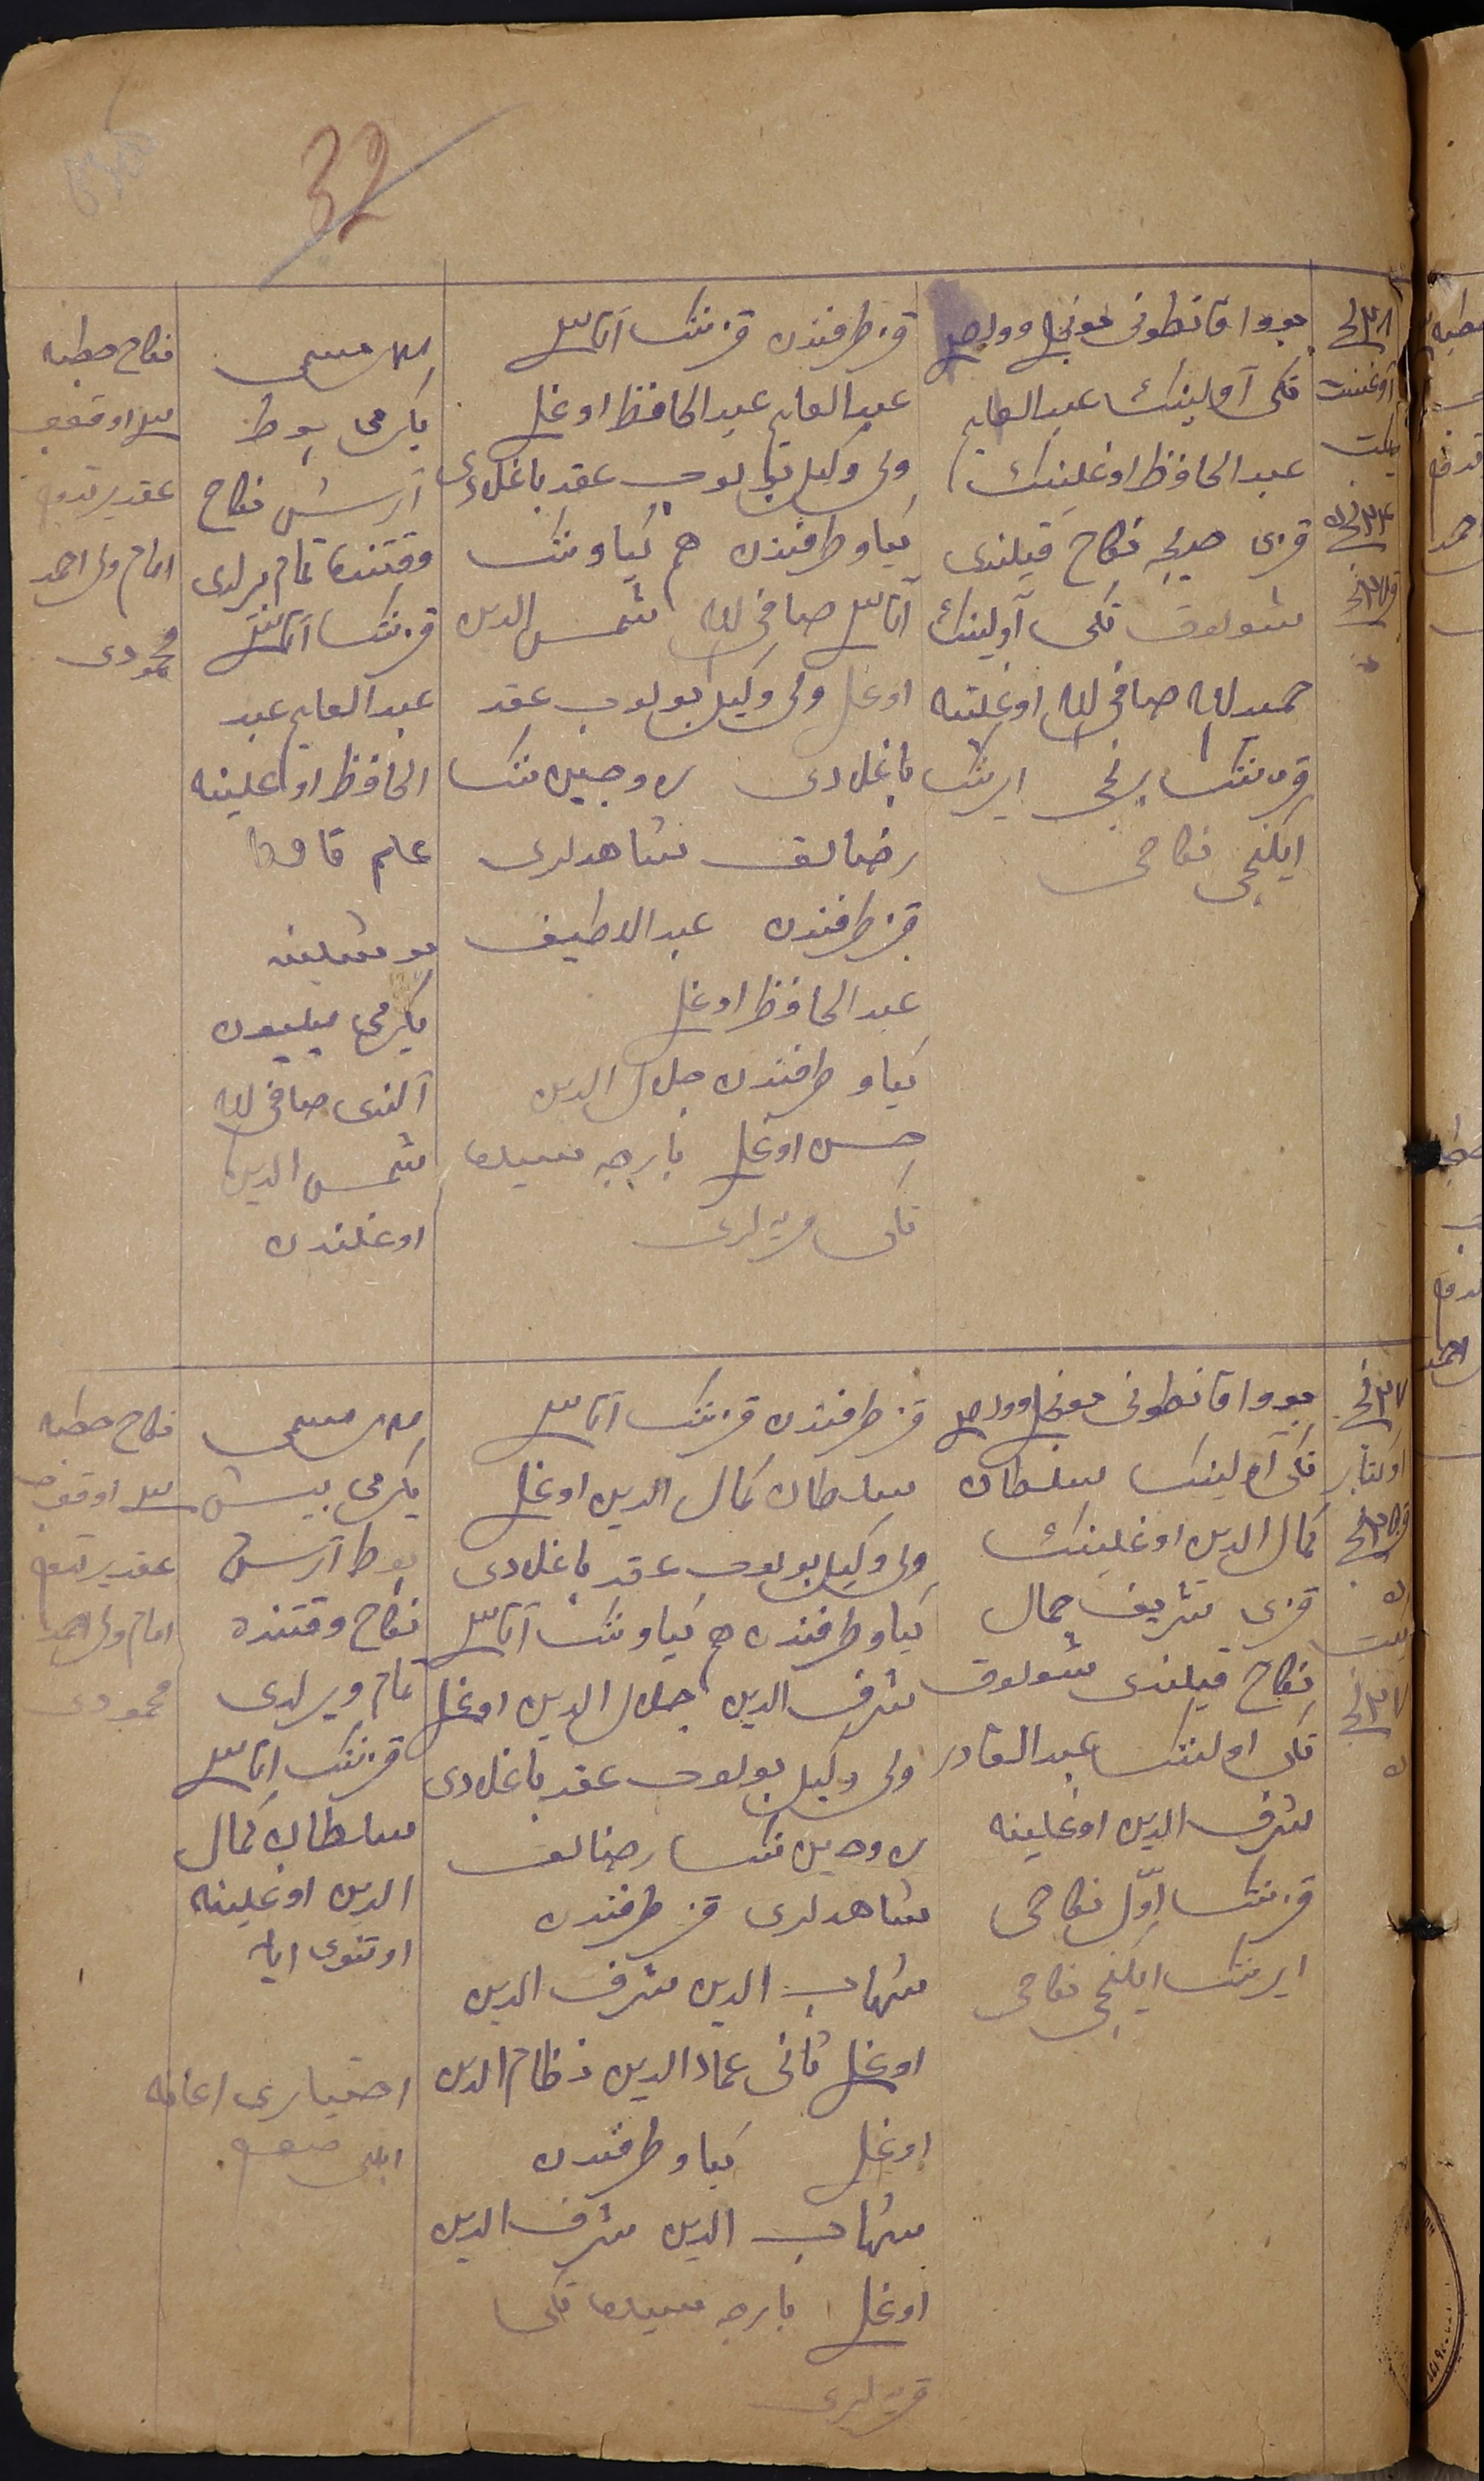 32
بووا قانطونی
تكی آولینك عبد العلیم
عبد الحافظ اوغلینك
قزی خدیجه نكاح قیلندی
شولوق تكی آولینك
حمید الله صافی الله اوغلینه
قزننك برنچی ایرننك
ایكنچی نكاحی
قز طرفندن قزننك آتاسی
عبد العلیم عبد الحافظ اوغلی
ولی وكیل بولوب عقد باغلادی
كیاو طرفندن هم كیاوننك
آتاسی صافی الله شمس الدین
اوغلی ولی وكیل بولوب عقد
باغلادی زوجین ننك
رضالق شاهدلری
قز طرفندن عبد اللطیف
عبد الحافظ اوغلی
كیاو طرفندن جلال الدین
حسن اوغلی بارچه سیده
تكی قریه لری
یكرمی بوط
آرش نكاح
وقتنده تمام برلدی
قزننك آتاسی
عبد العلیم عبد
الحافظ اوغلینه
یكرمی میلیون
آلندی صافی الله
شمس الدین
اوغلندن
نكاح خطبه
سی اوقوب
عقد یرتدم
امام ولی احمد
محمودی
اوكتابر
بووا قانطونی
تكی آولینك سلطان
كمال الدین اوغلینك
قزی شریف جمال
نكاح قیلندی شولوق
تكی اولننك عبد القادر
شرف الدین اوغلینه
قزننك اوّل نكاحی
ایرننك ایكنچی نكاحی
قز طرفندن قزننك آتاسی
سلطان كمال الدین اوغلی
ولی وكیل بولوب عقد باغلادی
كیاو طرفندن هم كیاوننك آتاسی
شرف الدین جلال الدین اوغلی
ولی وكیل بولوب عقد باغلادی
زوجین ننك رضالق
شاهدلری قز طرفندن
شهاب الدین شرف الدین
اوغلی ثانی عماد الدین نظام الدین
اوغلی كیاو طرفندن
شهاب الدین شرف الدین
اوغلی بارچه سیده تكی
قریه لری
یكرمی بیش
بوط آرش
نكاح وقتنده
تمام ویرلدی
قزننك اتاسی
سلطان كمال
الدین اوغلینه
اوتنوی ایله
اختیاری اعانه
نكاح خطبه
سی اوقوب
عقد یرتدم
امام ولی احمد
محمودی